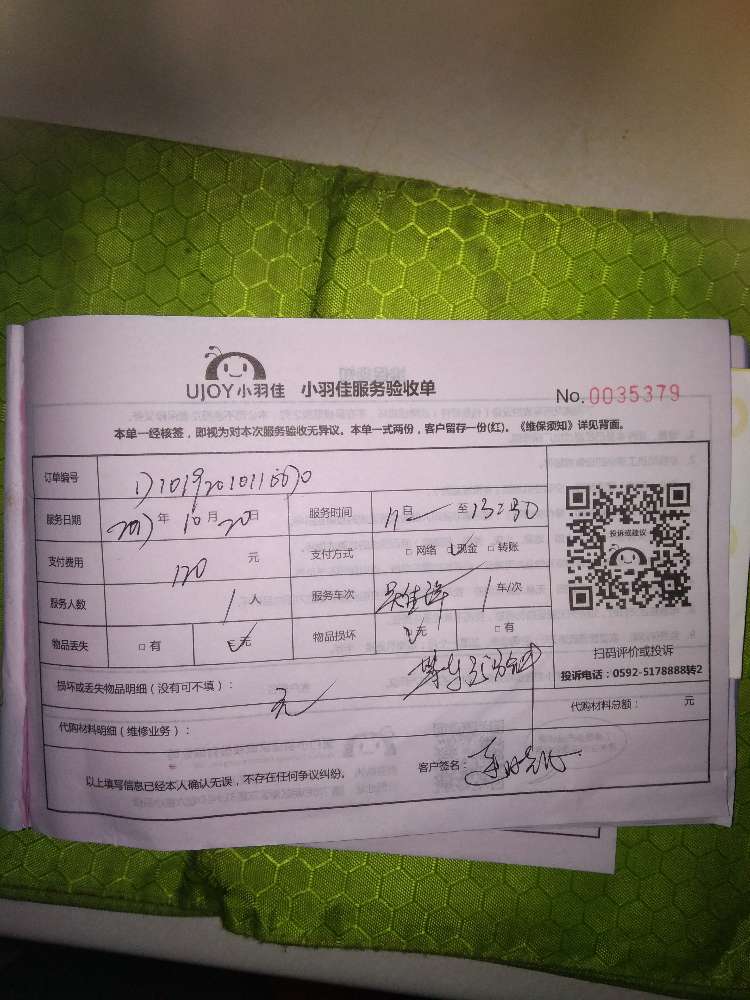 UJOY小羽佳 小羽佳服务验收单
No. 0035379
本单一经核签，即视为对本次服务验收无异议。本单一式两份，客户留存一份(红)。《维保须知》详见背面。
订单编号
服务日期 年 10 月 20 日 服务时间 自 至 13:30
支付费用 120 元 支付方式 □ 网络 □ 现金 □ 转账
服务人数 1 人 服务车次 1 车/次
物品丢失 □ 有 □ 无 物品损坏 □ 无 □ 有
投诉或建议
扫码评价或投诉
投诉电话：0592-5178888转2
损坏或丢失物品明细（没有可不填）： 无 35分钟
代购材料明细（维修业务）： 代购材料总额： 元
以上填写信息已经本人确认无误，不存在任何争议纠纷。 客户签名：